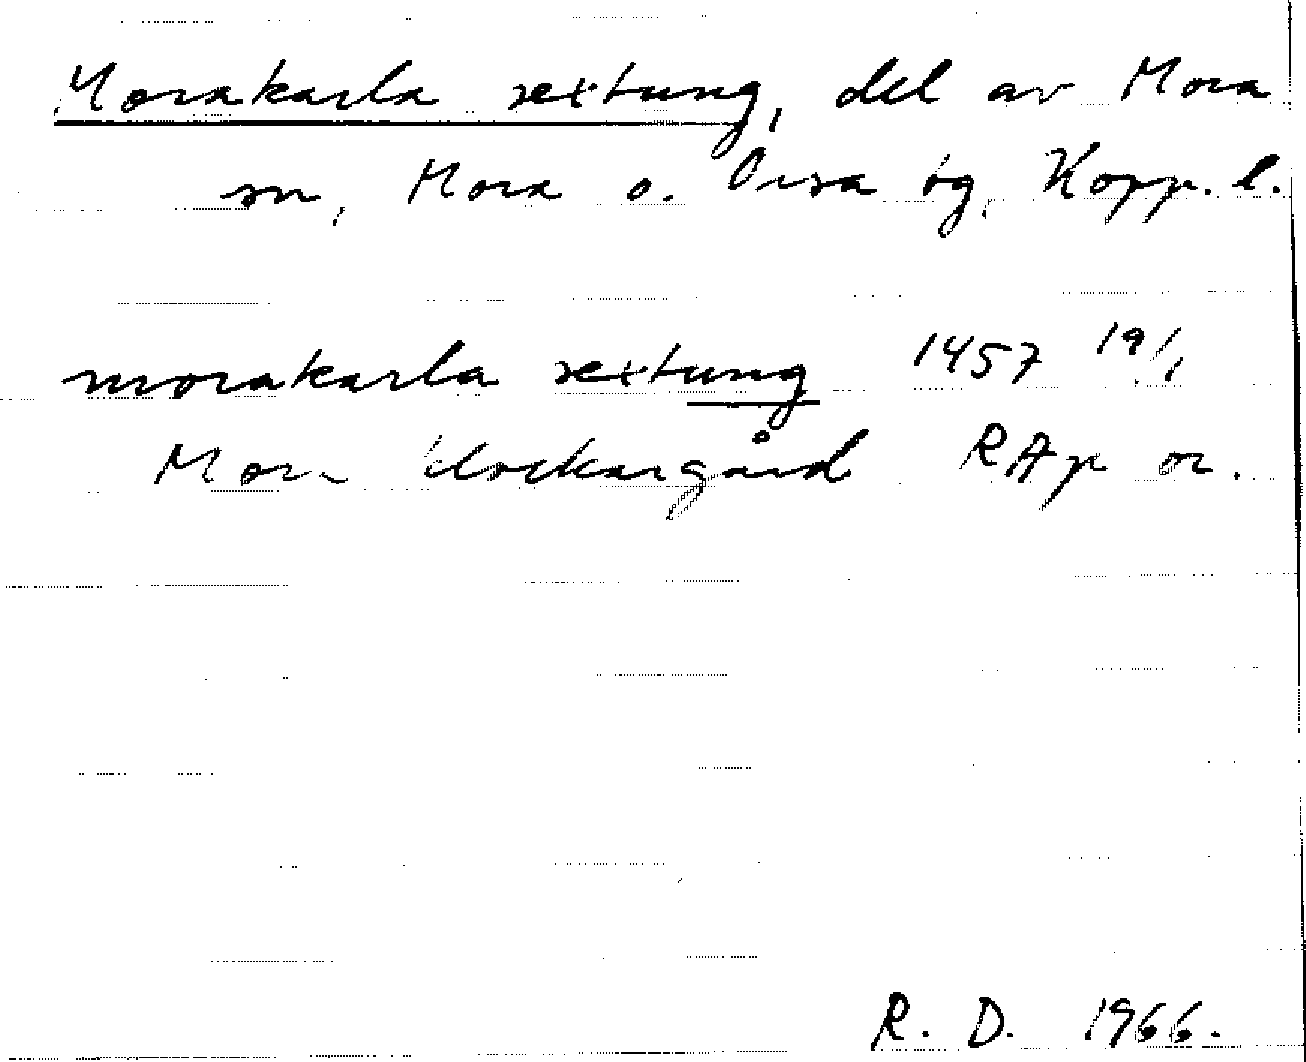 Morakarla sextung, del av Mora
sn, Mora o. Orsa tg, Kopp. l.
morakarla sextung 1457 19/1
Mora klockargård RAp or.
R. D. 1966.